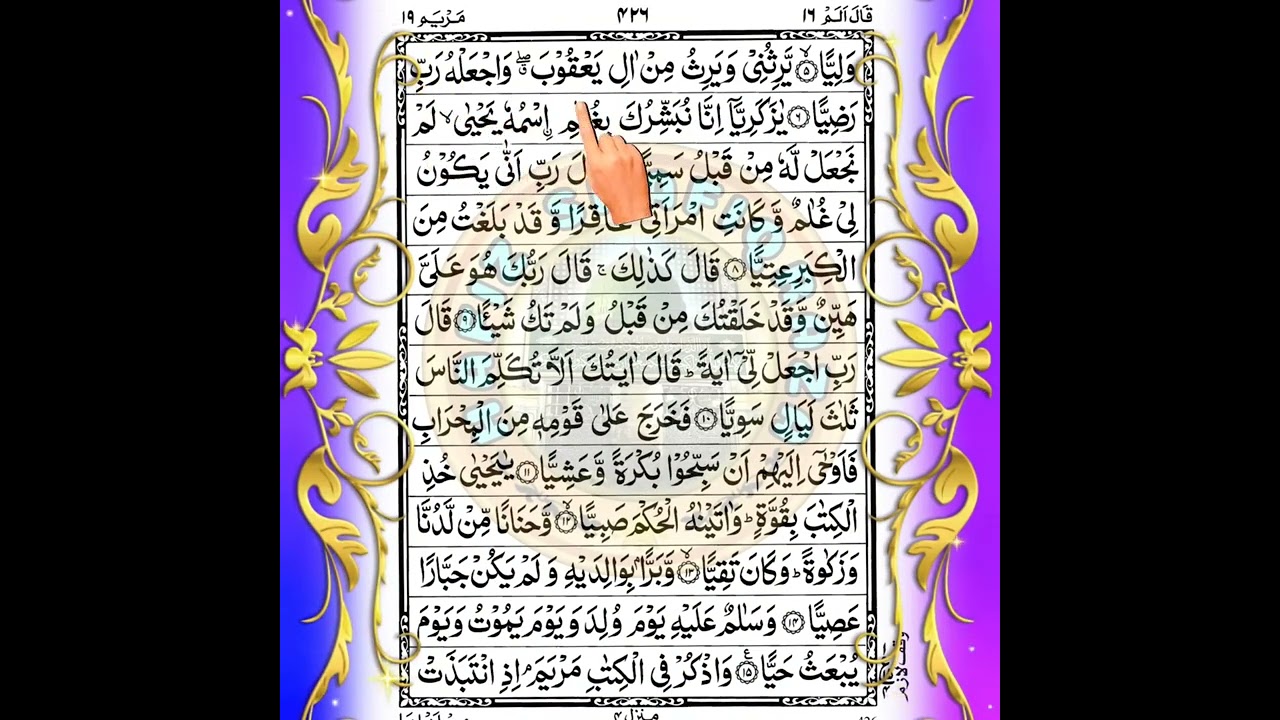 قَالَ اَلَمْ ١٦ ۴۲۶ مَرْيَم ١٩
وَلِيًّا ۙ‏﴿۵﴾ يَّرِثُنِىْ وَيَرِثُ مِنْ اٰلِ يَعْقُوْبَ ۖۗ وَاجْعَلْهُ رَبِّ
رَضِيًّا ﴿۶﴾ يٰزَكَرِيَّاۤ اِنَّا نُبَشِّرُكَ بِغُلٰمِ ۟اسْمُهٗ يَحْيٰى ۙ لَمْ
نَجْعَلْ لَّهٗ مِنْ قَبْلُ رَبِّ اَنّٰى يَكُوْنُ
لِىْ غُلٰمٌ وَّكَانَتِ امْرَاَتِىْ عَاقِرًا وَّقَدْ بَلَغْتُ مِنَ
الْكِبَرِ عِتِيًّا ﴿۸﴾ قَالَ كَذٰلِكَ ۚ قَالَ رَبُّكَ هُوَ عَلَىَّ
هَيِّنٌ وَّقَدْ خَلَقْتُكَ مِنْ قَبْلُ وَلَمْ تَكُ شَيْـًٔا ﴿۹﴾ قَالَ
رَبِّ اجْعَلْ لِّىْۤ اٰيَةً ؕ قَالَ اٰيَتُكَ اَلَّا تُكَلِّمَ النَّاسَ
ثَلٰثَ لَيَالٍ سَوِيًّا ﴿۱۰﴾ فَخَرَجَ عَلٰى قَوْمِهٖ مِنَ الْمِحْرَابِ
فَاَوْحٰۤى اِلَيْهِمْ اَنْ سَبِّحُوْا بُكْرَةً وَّعَشِيًّا ﴿۱۱﴾ يٰيَحْيٰى خُذِ
الْكِتٰبَ بِقُوَّةٍ ؕ وَاٰتَيْنٰهُ الْحُكْمَ صَبِيًّا ۙ﴿۱۲﴾ وَّحَنَانًا مِّنْ لَّدُنَّا
وَزَكٰوةً ؕ وَكَانَ تَقِيًّا ۙ﴿۱۳﴾ وَّبَرًّۢا بِوَالِدَيْهِ وَلَمْ يَكُنْ جَبَّارًا
عَصِيًّا ﴿۱۴﴾ وَسَلٰمٌ عَلَيْهِ يَوْمَ وُلِدَ وَيَوْمَ يَمُوْتُ وَيَوْمَ
يُبْعَثُ حَيًّا ﴿۱۵﴾ وَاذْكُرْ فِى الْكِتٰبِ مَرْيَمَ ۘ اِذِ انْتَبَذَتْ
وقف لازم
منزل ۴